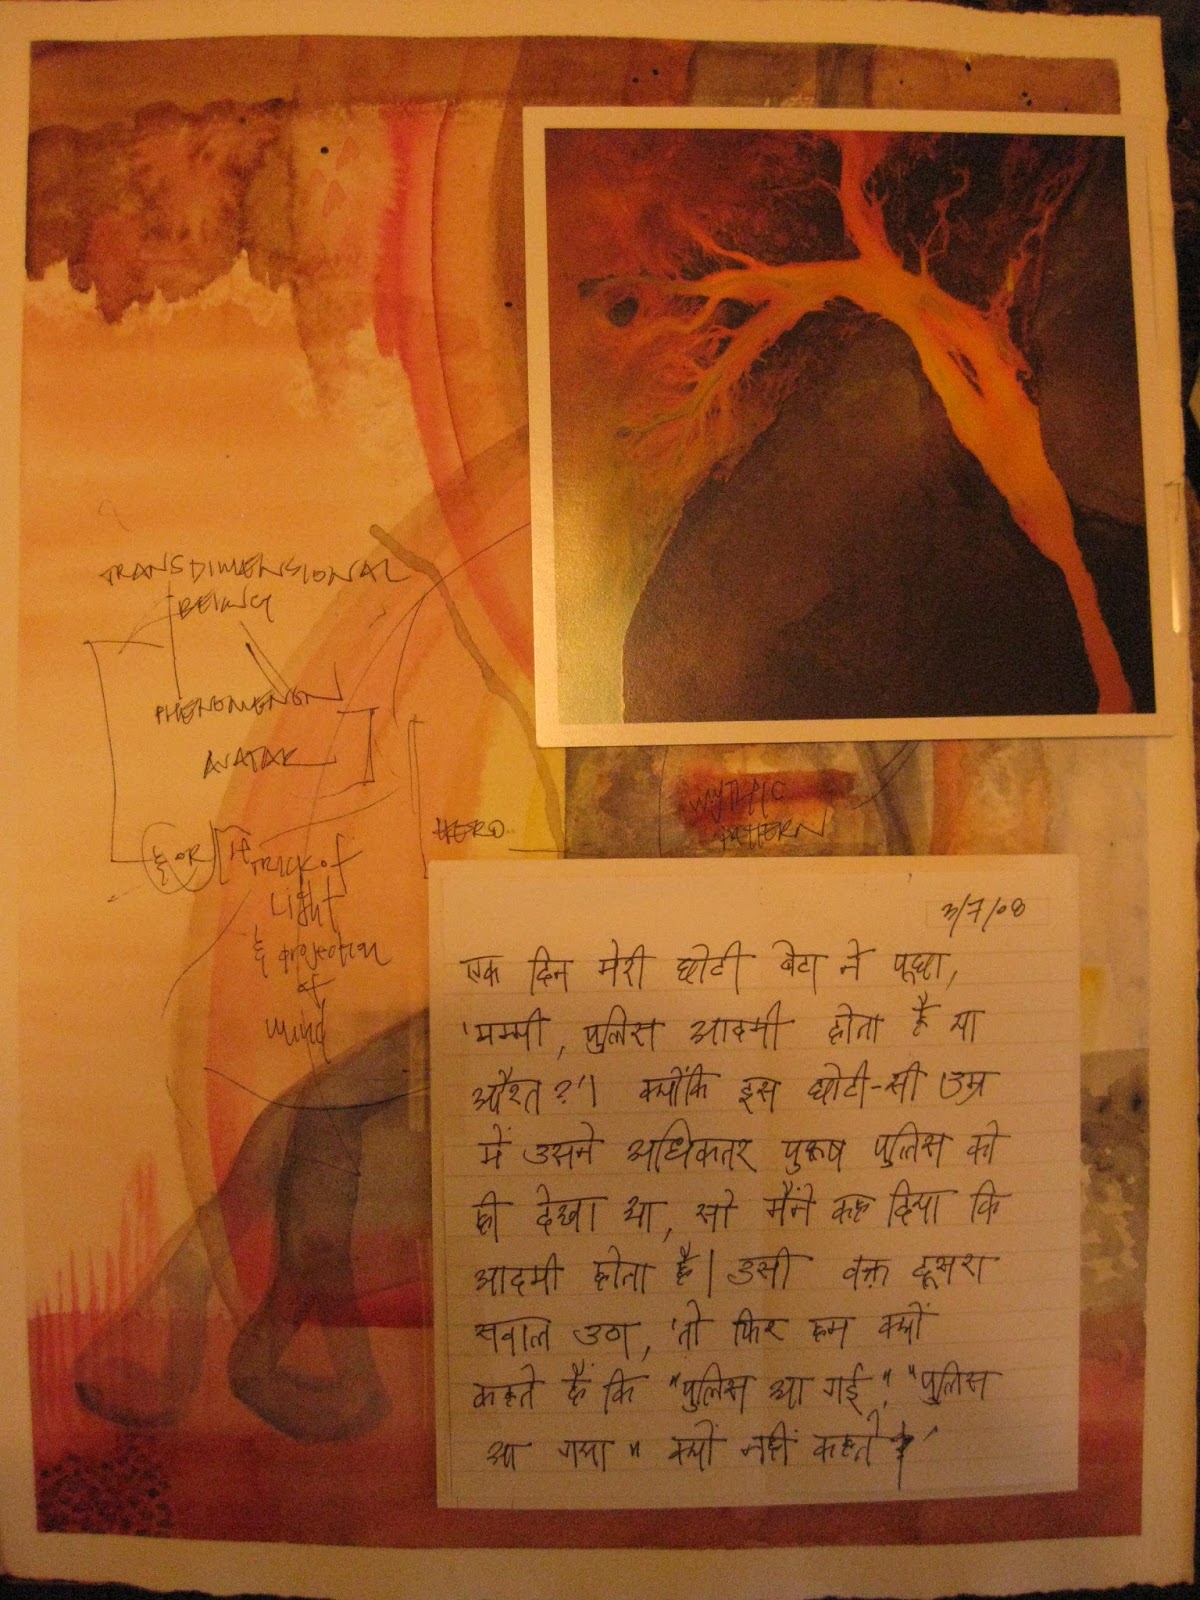 TRANSDIMENSIONAL
BEING
PHENOMENON
AVATAR
& OR
TRICK OF
LIGHT
& projection
of
mind
HERO
MYTHIC
PATTERN
3/7/08
एक दिन मेरी छोटी बेटी ने पूछा,
'मम्मी, पुलिस आदमी होता है या
औरत?'। क्योंकि इस छोटी-सी उम्र
में उसने अधिकतर पुरूष पुलिस को
ही देखा था, सो मैंने कह दिया कि
आदमी होता है। उसी वक़्त दूसरा
सवाल उठा, 'तो फिर हम क्यों
कहते हैं कि "पुलिस आ गई", "पुलिस
आ गया" क्यों नहीं कहते